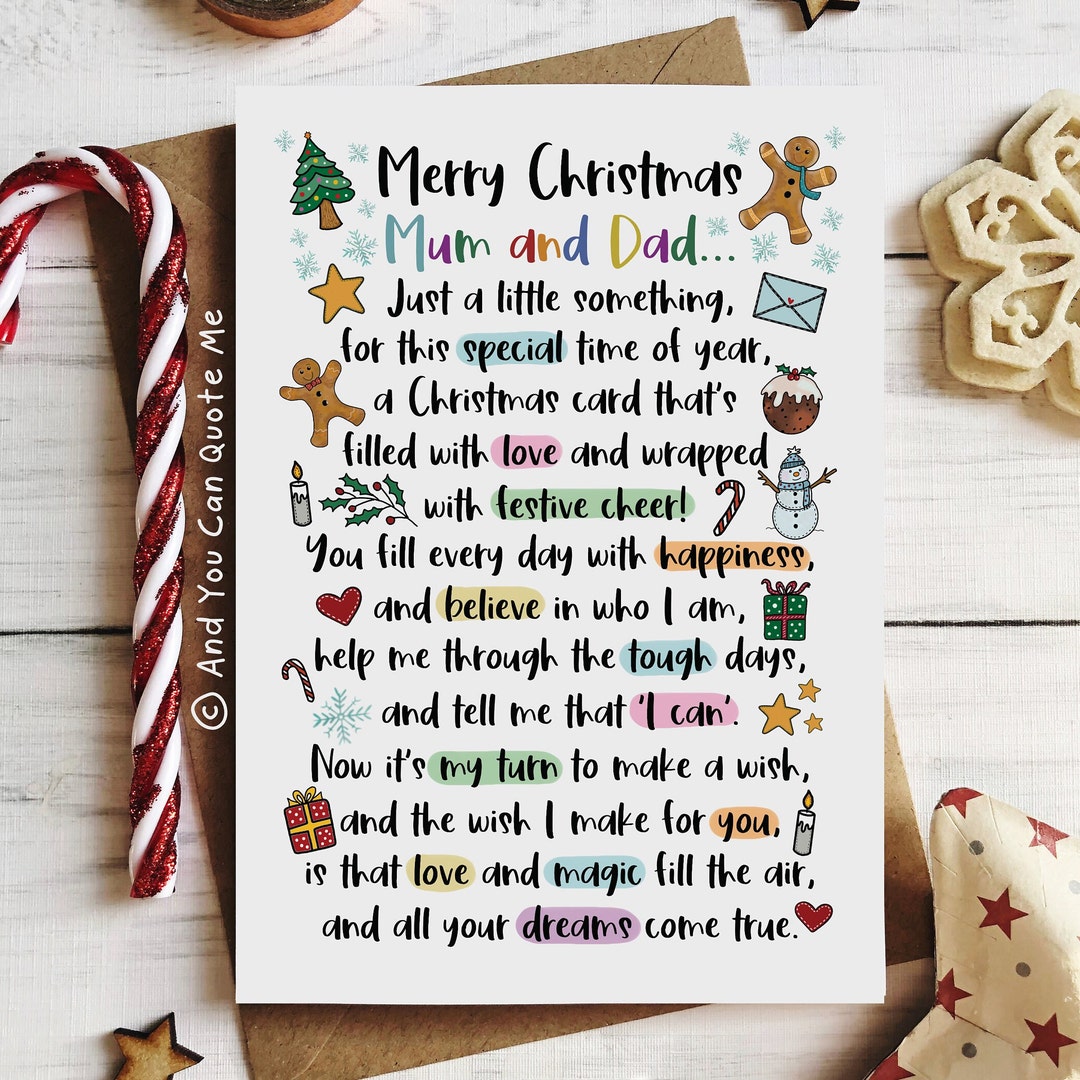 Merry Christmas
Mum and Dad...
Just a little something,
for this special time of year,
a Christmas card that's
filled with love and wrapped
with festive cheer!
You fill every day with happiness,
and believe in who I am,
help me through the tough days,
and tell me that 'I can'.
Now it's my turn to make a wish,
and the wish I make for you,
is that love and magic fill the air,
and all your dreams come true.
© And You Can Quote Me